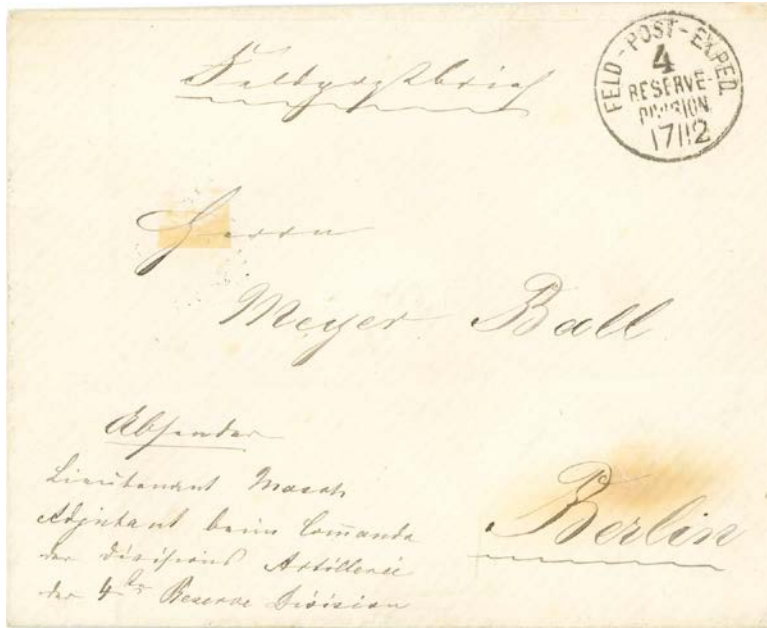 Feldpostbrief
FELD-POST-EXPED.
4
RESERVE-
DIVISION
17 12
Herrn
Meyer Ball
Absender
Lieutenant
Adjutant beim Commando
der Divisions Artillerie
der 4ten Reserve Division
Berlin